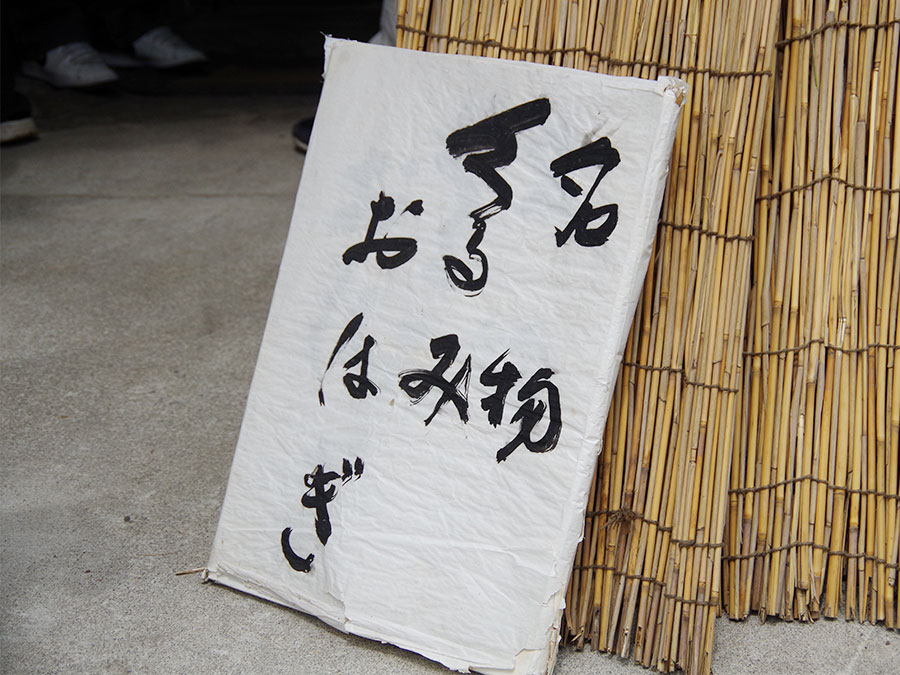 名物
くるみ
おはぎ